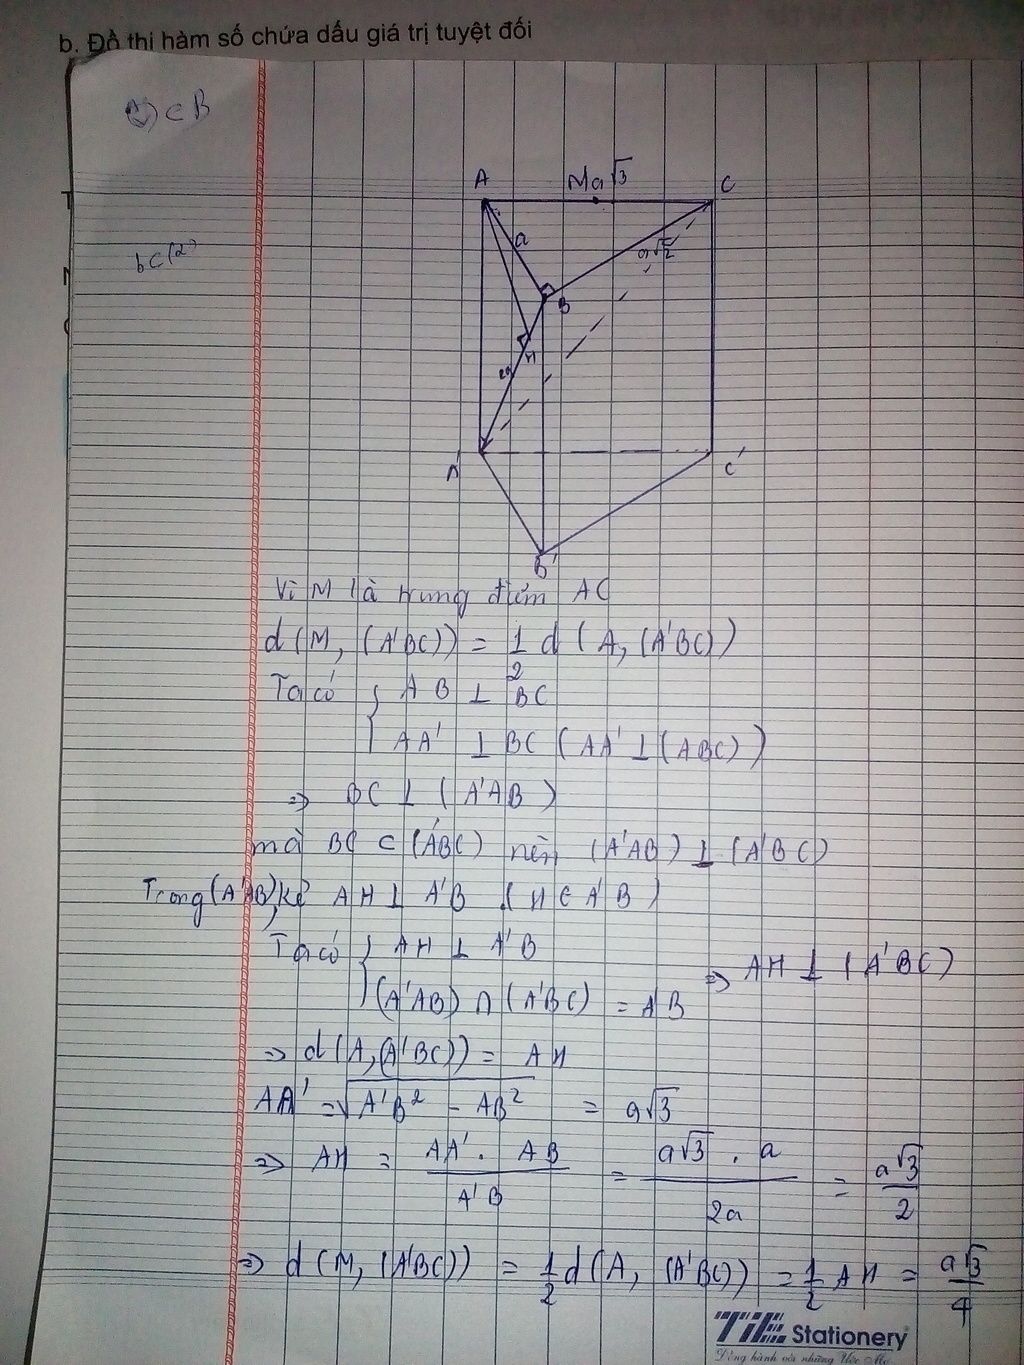 b. Đồ thị hàm số chứa dấu giá trị tuyệt đối
⊂ B
A M a√3 C
a a√2
B
H
2a
A' C'
B'
Vì M là trung điểm AC
d(M, (A'BC)) = 1/2 d(A, (A'BC))
Ta có { AB ⊥ BC
AA' ⊥ BC (AA' ⊥ (ABC))
=> BC ⊥ (A'AB)
mà BC ⊂ (A'BC) nên (A'AB) ⊥ (A'BC)
Trong (A'AB), kẻ AH ⊥ A'B (H ∈ A'B)
Ta có { AH ⊥ A'B
(A'AB) ∩ (A'BC) = A'B => AH ⊥ (A'BC)
=> d(A, (A'BC)) = AH
AA' = √(A'B² - AB²) = a√3
=> AH = AA' . AB / A'B = a√3 . a / 2a = a√3 / 2
=> d(M, (A'BC)) = 1/2 d(A, (A'BC)) = 1/2 AH = a√3 / 4
TiE Stationery
Đồng hành với những Ước Mơ